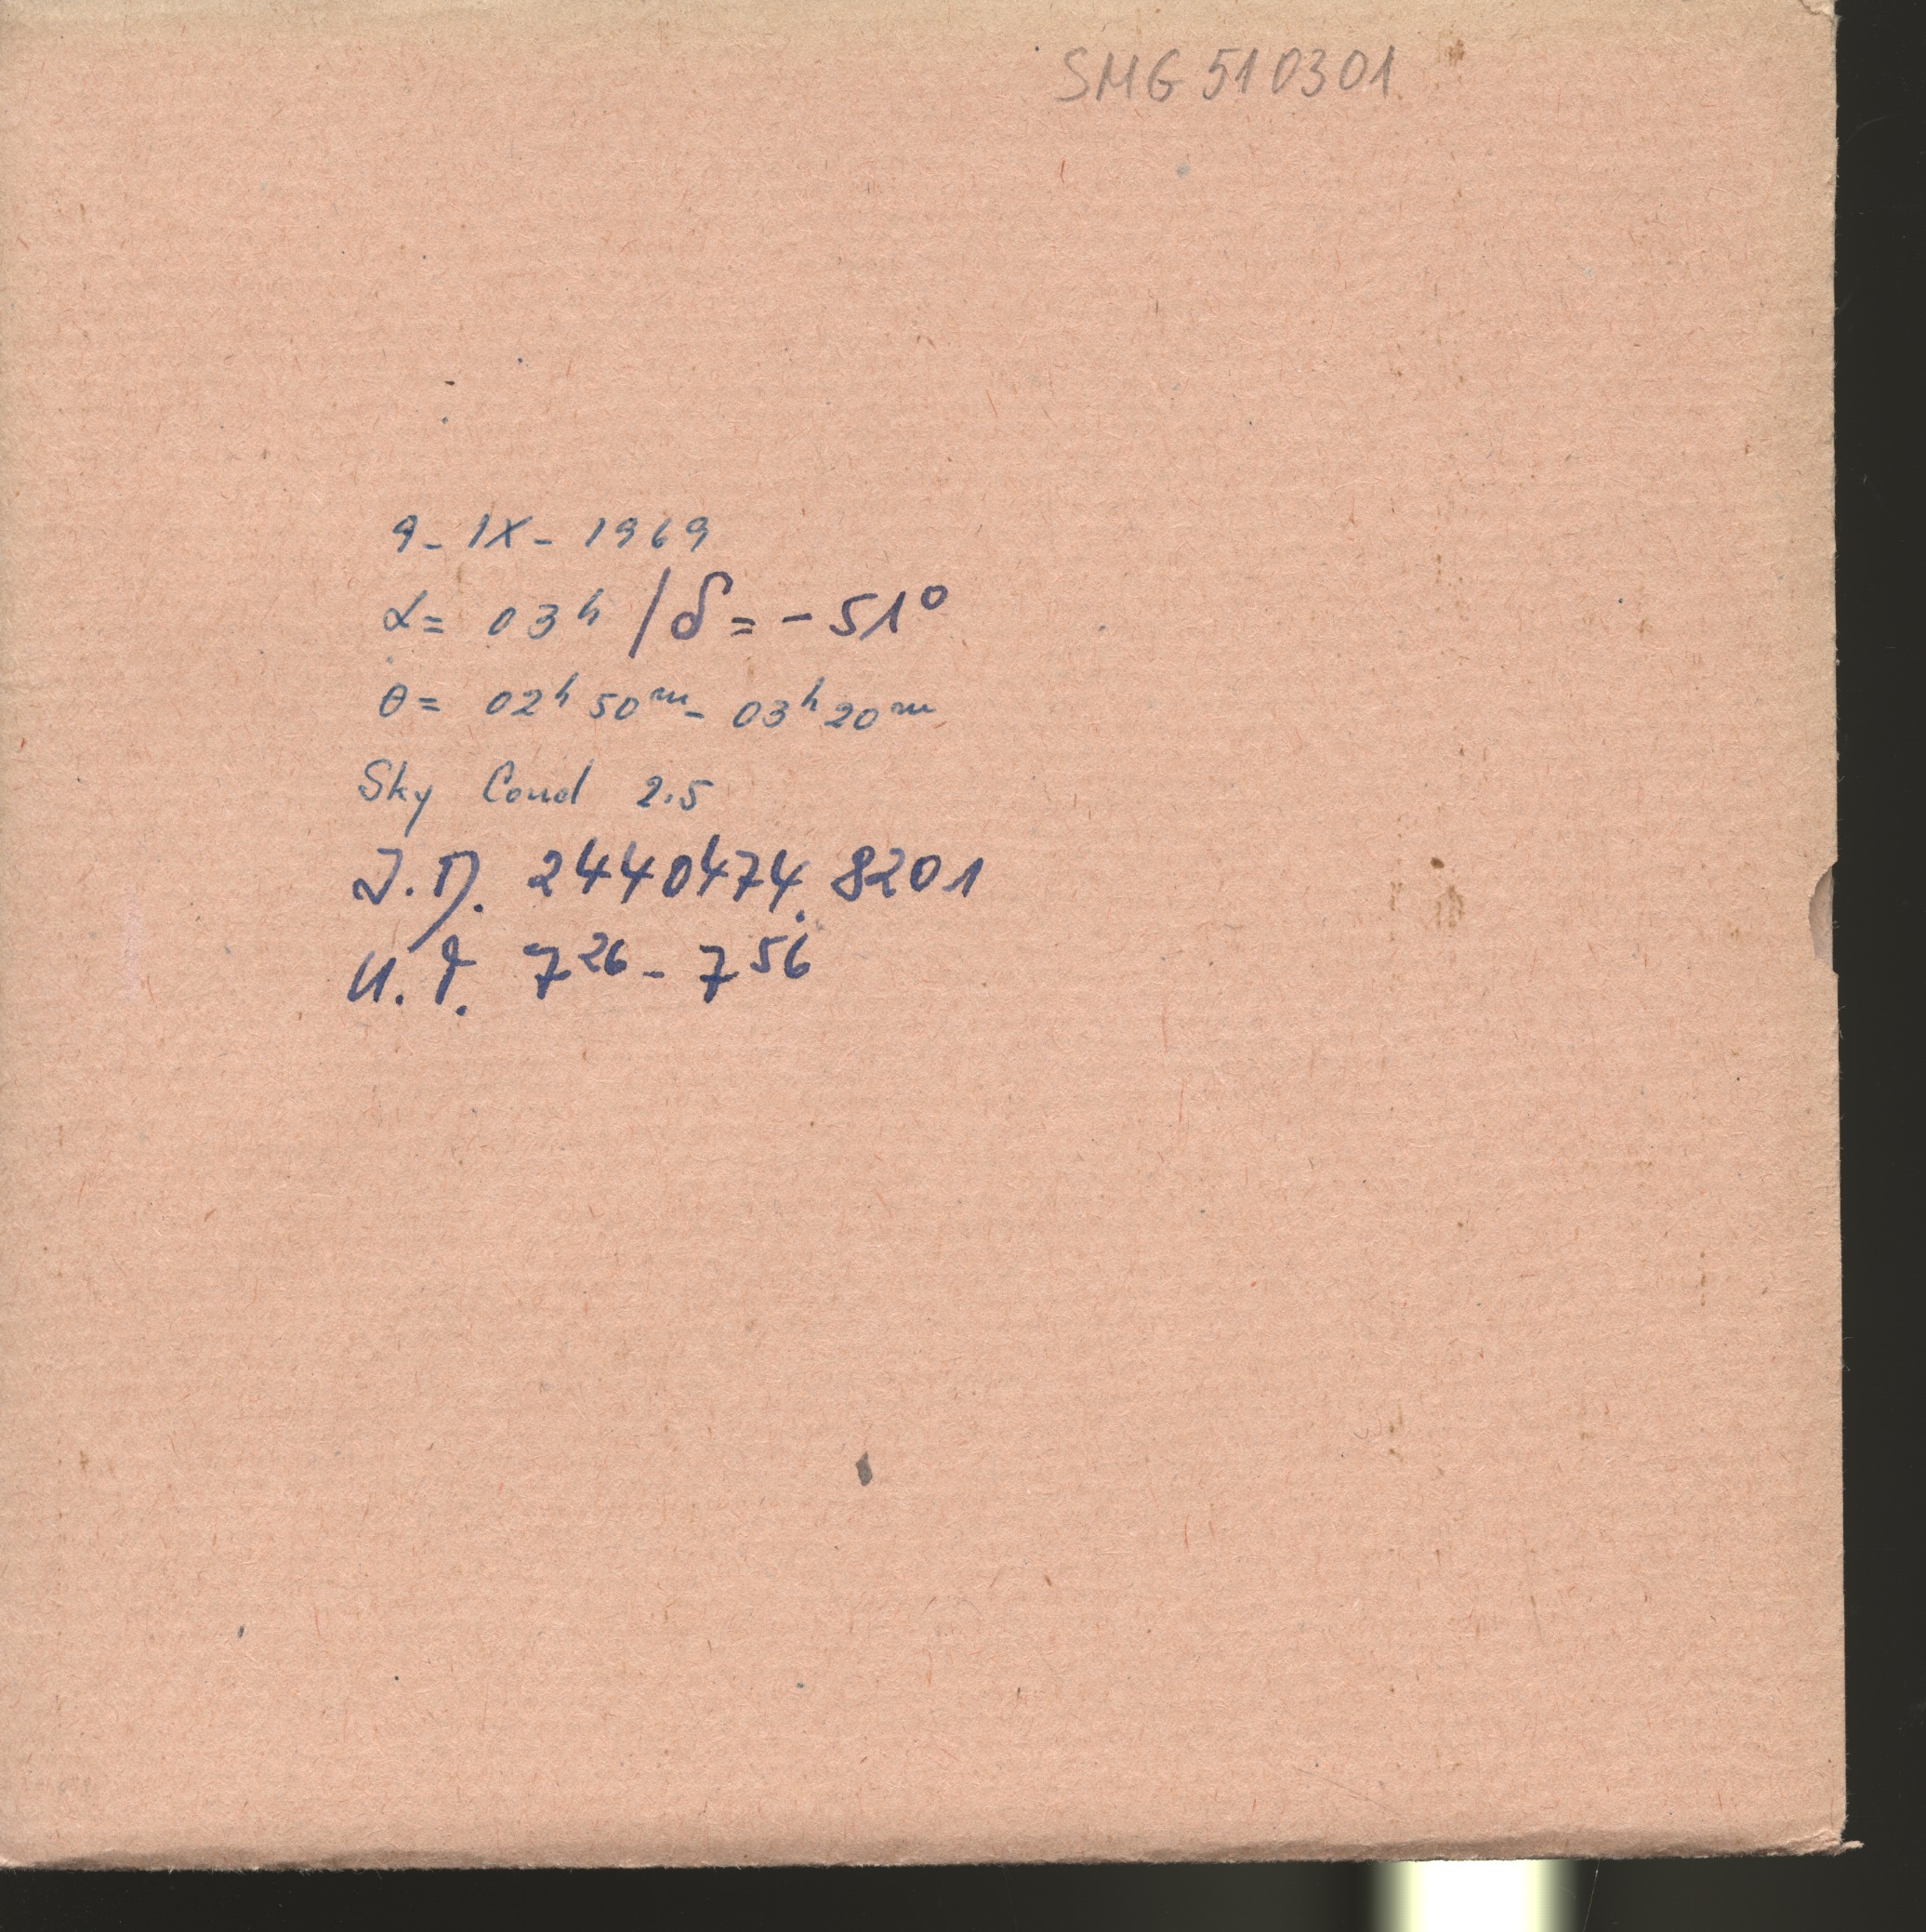 SMG 510301
9-IX-1969
α= 03ʰ / δ = -51°
θ= 02ʰ 50ᵐ- 03ʰ 20ᵐ
Sky Cond 2.5
J.D. 2440474.8201
U.T. 7²⁶ - 7⁵⁶